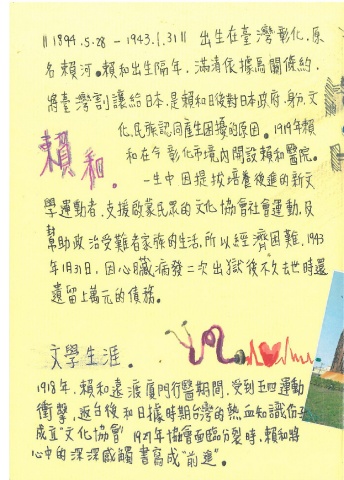 ‖1894.5.28 - 1943.1.31‖ 出生在臺灣彰化,原
名賴河。賴和出生隔年,滿清依據馬關條約,
將臺灣割讓給日本,是賴和日後對日本政府,身份,文
化,民族認同產生困擾的原因。1919年賴
和在今彰化市場內開設賴和醫院。
賴和.
一生中因提拔培養後進的新文
學運動者,支援啟蒙民眾的文化協會社會運動,及
幫助政治受難者家族的生活,所以經濟困難,1943
年1月31日,因心臟病發二次出獄後不久去世時還
遺留上萬元的債務。
文學生涯.
1918年,賴和遠渡廈門行醫期間,受到五四運動
衝擊,返台後和日據時期台灣的熱血知識份子
成立"文化協會" 1927年協會面臨分裂時,賴和將
心中的深深感觸書寫成"前進"。